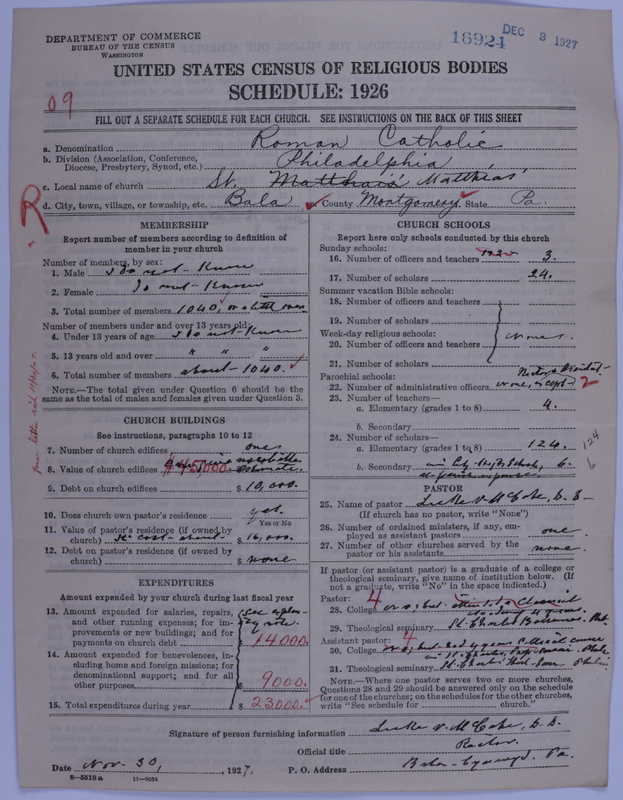 DEPARTMENT OF COMMERCE
BUREAU OF THE CENSUS
WASHINGTON
16924 DEC 3 1927
UNITED STATES CENSUS OF RELIGIOUS BODIES
SCHEDULE: 1926
09
FILL OUT A SEPARATE SCHEDULE FOR EACH CHURCH. SEE INSTRUCTIONS ON THE BACK OF THIS SHEET
a. Denomination Roman Catholic
b. Division (Association, Conference, Diocese, Presbytery, Synod, etc.) Philadelphia
c. Local name of church St. Matthias'
d. City, town, village, or township, etc. Bala County Montgomery State Pa.
R
MEMBERSHIP
Report number of members according to definition of
member in your church
Number of members, by sex:
1. Male I do not Know
2. Female do not Know
3. Total number of members 1040,
Number of members under and over 13 years old:
4. Under 13 years of age I do not Know
5. 13 years old and over " " "
6. Total number of members about 1040.
NOTE.—The total given under Question 6 should be the
same as the total of males and females given under Question 3.
CHURCH BUILDINGS
See instructions, paragraphs 10 to 12
7. Number of church edifices one
8. Value of church edifices $45,000. estimate.
9. Debt on church edifices $ 10,000.
10. Does church own pastor's residence yes.
Yes or No
11. Value of pastor's residence (if owned by
church) cost about $ 16,000.
12. Debt on pastor's residence (if owned by
church) $ none
EXPENDITURES
Amount expended by your church during last fiscal year
13. Amount expended for salaries, repairs,
and other running expenses; for im-
provements or new buildings; and for
payments on church debt $ 14000.
14. Amount expended for benevolences, in-
cluding home and foreign missions; for
denominational support; and for all
other purposes $ 9000.
15. Total expenditures during year $ 23000.
CHURCH SCHOOLS
Report here only schools conducted by this church
Sunday schools:
16. Number of officers and teachers 3.
17. Number of scholars 24.
Summer vacation Bible schools:
18. Number of officers and teachers
19. Number of scholars
Week-day religious schools: none.
20. Number of officers and teachers
21. Number of scholars
Parochial schools:
22. Number of administrative officers none, except 2
23. Number of teachers—
a. Elementary (grades 1 to 8) 4.
b. Secondary
24. Number of scholars—
a. Elementary (grades 1 to 8) 124. 124
b. Secondary 6. 6
PASTOR
25. Name of pastor Luke V. McCabe, D.D.
(If church has no pastor, write "None")
26. Number of ordained ministers, if any, em-
ployed as assistant pastors one
27. Number of other churches served by the
pastor or his assistants none.
If pastor (or assistant pastor) is a graduate of a college or
theological seminary, give name of institution below. (If
not a graduate, write "No" in the space indicated.)
Pastor: 4
28. College
29. Theological seminary St. Charles Borromeo
Assistant pastor: 4
30. College
31. Theological seminary St. Charles
NOTE.—Where one pastor serves two or more churches,
Questions 28 and 29 should be answered only on the schedule
for one of the churches; on the schedules for the other churches,
write "See schedule for church."
Signature of person furnishing information Luke V. McCabe, D.D.
Official title Rector.
Date Nov. 30, 1927. P. O. Address Bala-Cynwyd, Pa.
8-5518a 11-9034